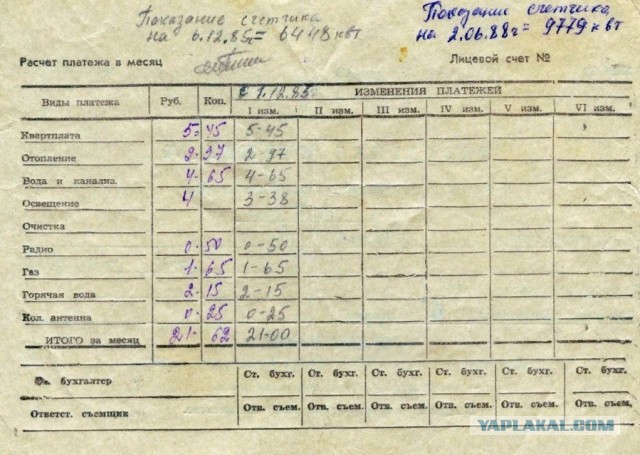 Показание счетчика
на 6.12.85г = 6448 квт
Показание счетчика
на 2.06.88г = 9779 квт
Расчет платежа в месяц
Лицевой счет №
Виды платежа Руб. Коп. с 1.12.85 ИЗМЕНЕНИЯ ПЛАТЕЖЕЙ
I изм. II изм. III изм. IV изм. V изм. VI изм.
Квартплата 5= 45 5-45
Отопление 2- 97 2-97
Вода и канализ. 4- 65 4-65
Освещение 4 3-38
Очистка
Радио 0- 50 0-50
Газ 1- 65 1-65
Горячая вода 2- 15 2-15
Кол. антенна 0- 25 0-25
ИТОГО за месяц 21- 62 21-00
бухгалтер Ст. бухг. Ст. бухг. Ст. бухг. Ст. бухг. Ст. бухг. Ст. бухг.
Ответст. съемщик Отв. съем. Отв. съем. Отв. съем. Отв. съем. Отв. съем. Отв. съем.
YAPLAKAL.COM